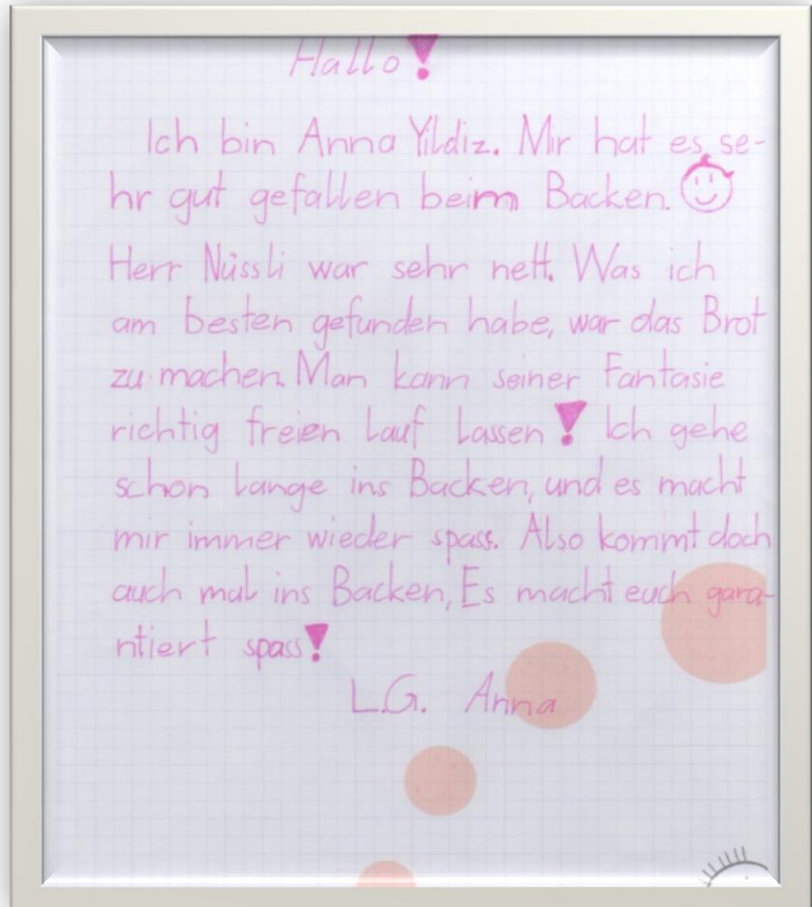 Hallo!
Ich bin Anna Yildiz. Mir hat es se-
hr gut gefallen beim Backen.
Herr Nüssli war sehr nett. Was ich
am besten gefunden habe, war das Brot
zu machen. Man kann seiner Fantasie
richtig freien Lauf lassen! Ich gehe
schon lange ins Backen, und es macht
mir immer wieder spass. Also kommt doch
auch mal ins Backen, Es macht euch gara-
ntiert spass!
L.G. Anna